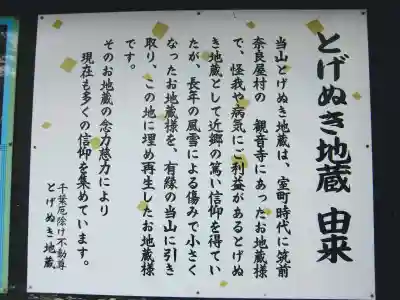 とげぬき地蔵 由来
当山とげぬき地蔵は、室町時代に筑前
奈良屋村の 観音寺にあったお地蔵様
で、怪我や病気にご利益があるとげぬ
き地蔵として近郷の篤い信仰を得てい
たが、長年の風雪による傷みで小さく
なったお地蔵様を、有縁の当山に引き
取り、この地に埋め再生したお地蔵様
です。
そのお地蔵の念力慈力により
現在も多くの信仰を集めています。
千葉厄除け不動尊
とげぬき地蔵